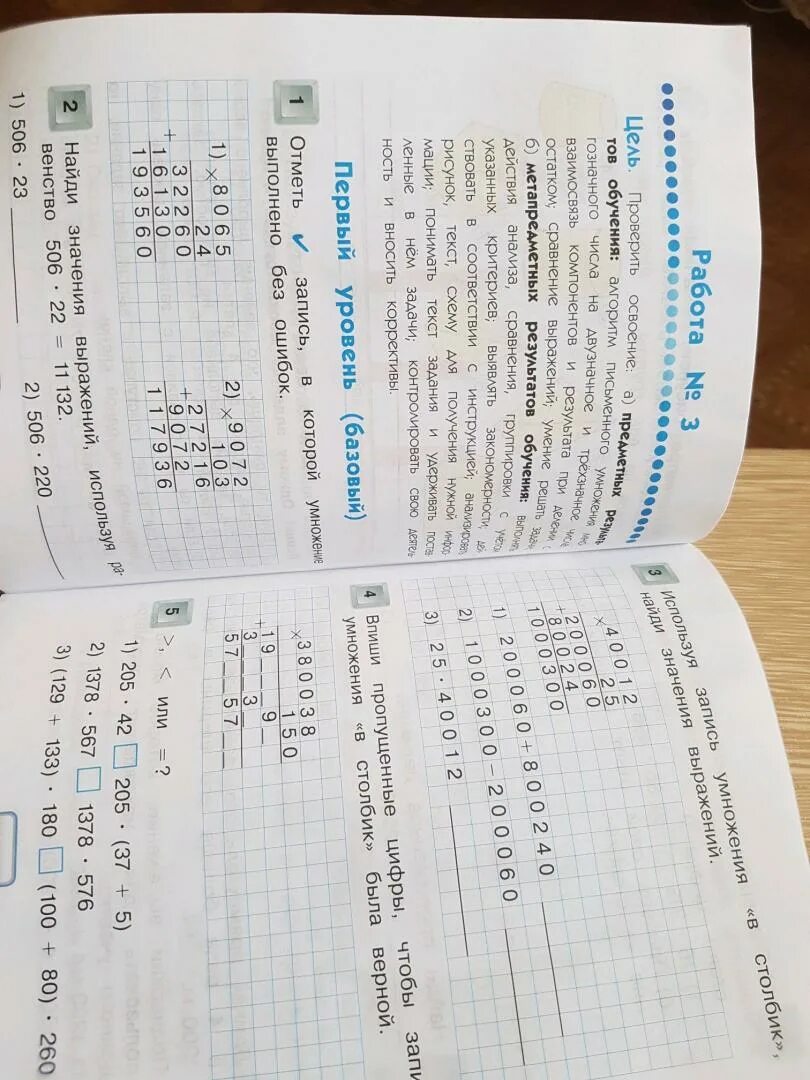 Работа № 3
Цель. Проверить освоение: а) предметных резуль
тов обучения: алгоритм письменного умножения
гозначного числа на двузначное и трёхзначное
взаимосвязь компонентов и результата при делении с
остатком; сравнение выражений; умение решать
б) метапредметных результатов обучения:
действия анализа, сравнения, группировки с
указанных критериев; выявлять закономерности;
ствовать в соответствии с инструкцией; анализировать
рисунок, текст, схему для получения нужной инфор
мации; понимать текст задания и удерживать постав
ленные в нём задачи; контролировать свою деятель
ность и вносить коррективы.
Первый уровень (базовый)
1 Отметь ✓ запись, в которой умножение
выполнено без ошибок.
1) × 8065
24
32260
+ 16130
193560
2) × 9072
103
27216
+ 9072
117936
2 Найди значения выражений, используя ра-
венство 506 · 22 = 11 132.
1) 506 · 23 ____
2) 506 · 220 ____
3 Используя запись умножения «в столбик»,
найди значения выражений.
× 40012
25
200060
+ 80024
1000300
1) 200060 + 800240 ____
2) 1000300 − 200060 ____
3) 25 · 40012 ____
4 Впиши пропущенные цифры, чтобы запи
умножения «в столбик» была верной.
× 380038
150
19__ _9_
+ 3_ _ _3_
57_ _57_ _
5 >, < или = ?
1) 205 · 42 □ 205 · (37 + 5)
2) 1378 · 567 □ 1378 · 576
3) (129 + 133) · 180 □ (100 + 80) · 260